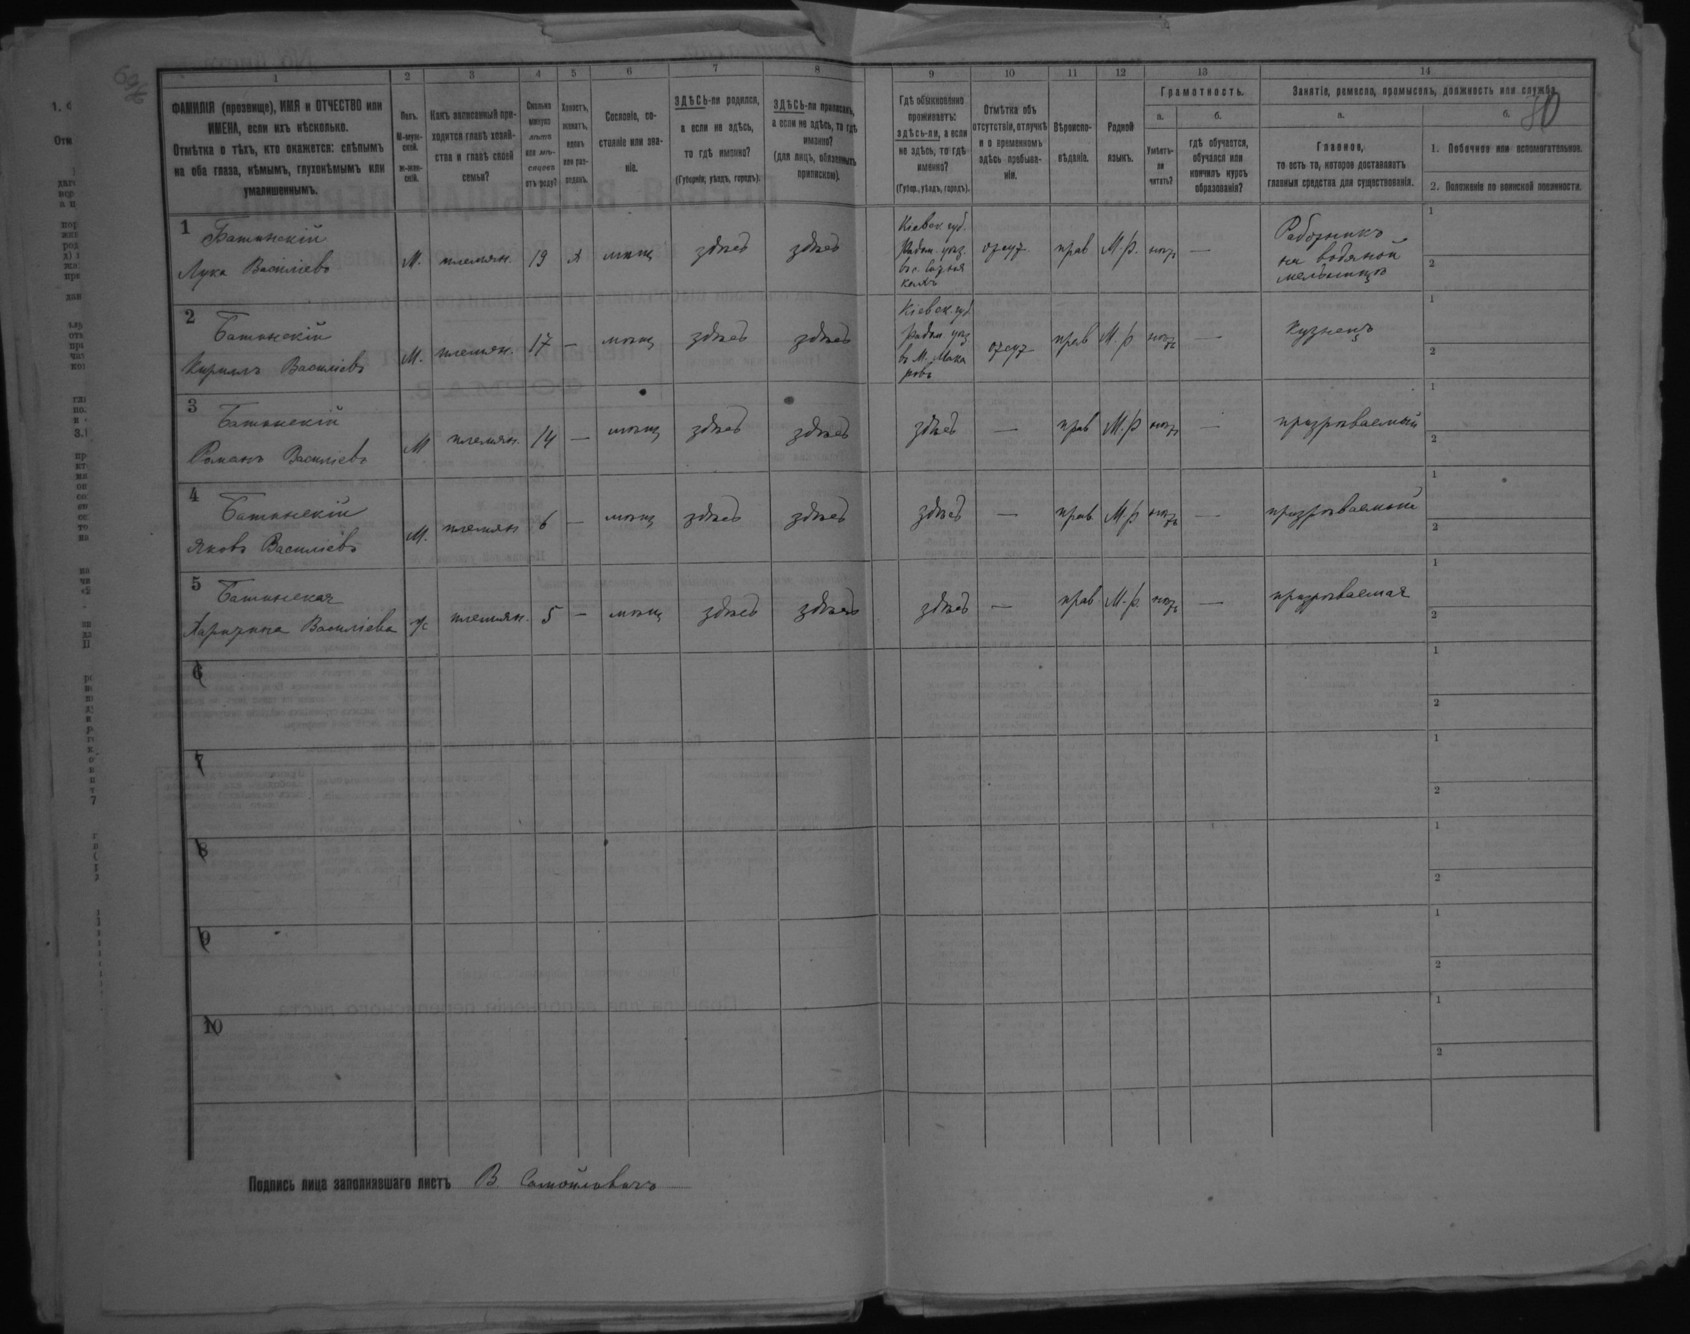 1 2 3 4 5 6 7 8 9 10 11 12 13 14
ФАМИЛІЯ (прозвище), ИМЯ и ОТЧЕСТВО или
ИМЕНА, если ихъ нѣсколько.
Отмѣтка о тѣхъ, кто окажется: слѣпымъ
на оба глаза, нѣмымъ, глухонѣмымъ или
умалишеннымъ.
Полъ.
М-муж-
ской.
ж-жен-
скій.
Какъ записанный при-
ходится главѣ хозяй-
ства и главѣ своей
семьи?
Сколько
минуло
лѣтъ
или мѣ-
сяцевъ
отъ роду?
Холостъ,
женатъ,
вдовъ
или раз-
веденъ.
Сословіе, со-
стояніе или зва-
ніе.
ЗДѢСЬ-ли родился,
а если не здѣсь,
то гдѣ именно?
(Губернія, уѣздъ, городъ).
ЗДѢСЬ-ли приписанъ,
а если не здѣсь, то гдѣ
именно?
(для лицъ, обязанныхъ
припискою).
Гдѣ обыкновенно
проживаетъ:
здѣсь-ли, а если
не здѣсь, то гдѣ
именно?
(Губер., уѣздъ, городъ).
Отмѣтка объ
отсутствіи, отлучкѣ
и о временномъ
здѣсь пребыва-
ніи.
Вѣроиспо-
вѣданіе.
Родной
языкъ.
Грамотность.
а.
Умѣетъ-
ли
читать?
б.
гдѣ обучается,
обучался или
кончилъ курсъ
образованія?
Занятіе, ремесло, промыселъ, должность или служба.
а.
Главное,
то есть то, которое доставляетъ
главныя средства для существованія.
б.
1. Побочное или вспомогательное.
2. Положеніе по воинской повинности.
1
Батинскій
Лука Василіевъ
М. племян. 19 х мѣщ здѣсь здѣсь
Кіевск губ.
Радом. уѣз.
отсут прав М.Р. нѣтъ —
Работникъ
на водяной
мельницѣ
1
2
2
Батинскій
Кириллъ Василіевъ
М. племян. 17 — мѣщ здѣсь здѣсь
Кіевск губ
Радом. уѣз
въ М. Мака
ровѣ
отсут прав М.р нѣтъ —
Кузнецъ
1
2
3
Батинскій
Романъ Василіевъ
М племян. 14 — мѣщ здѣсь здѣсь здѣсь — прав М.р нѣтъ — призрѣваемый
1
2
4
Батинскій
Яковъ Василіевъ
М. племян 6 — мѣщ здѣсь здѣсь здѣсь — прав М.р нѣтъ — призрѣваемый
1
2
5
Батинская
Харитина Василіева
ж племян. 5 — мѣщ здѣсь здѣсь здѣсь — прав М.р. нѣтъ — призрѣваемая
1
2
6
1
2
7
1
2
8
1
2
9
1
2
10
1
2
Подпись лица заполнявшаго листъ В Самойловичъ